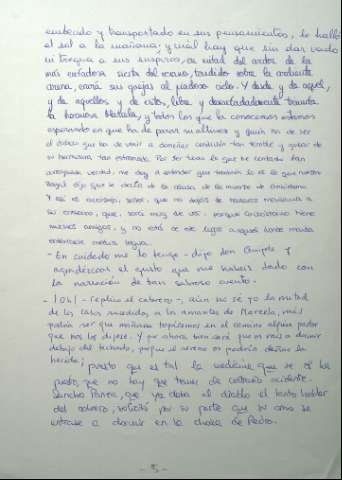 embebido y transportado en sus pensamientos, le halló
el sol a la mañana; y cuál hay que sin dar vado
ni tregua a sus suspiros, en mitad del ardor de la
más enfadosa siesta del verano, tendido sobre la ardiente
arena, envía sus quejas al piadoso cielo. Y deste y de aquel,
y de aquellos y de estos, libre y desenfadadamente triunfa
la hermosa Marcela, y todos los que la conocemos estamos
esperando en que ha de parar su altivez y quién ha de ser
el dichoso que ha de venir a domeñar condición tan terrible y gozar de
su hermosura tan estremada. Por ser todo lo que he contado tan
averiguada verdad, me doy a entender que también lo es la que nuestro
zagal dijo que se decía de la causa de la muerte de Crisóstomo.
Y así os aconsejo, señor, que no dejéis de hallaros mañana a
su entierro, que será muy de ver, porque Crisóstomo tiene
muchos amigos, y no está de este lugar a aquel donde manda
enterrarse media legua.
- En cuidado me lo tengo - dijo don Quijote y
agradezcoos el gusto que me habéis dado con
la narración de tan sabroso cuento.
- ¡Oh! - replicó el cabrero -, aún no sé yo la mitad
de los casos sucedidos a los amantes de Marcela, mas
podría ser que mañana topásemos en el camino algún pastor
que nos los dijese. Y por ahora bien será que os vais a dormir
debajo del techado, porque el sereno os podría dañar la
herida; puesto que es tal la medicina que se os ha
puesto, que no hay que temer de contrario accidente.
Sancho Panza, que ya daba al diablo el tanto hablar
del cabrero, solicitó por su parte que su amo se
entrase a dormir en la choza de Pedro.
- 5 -